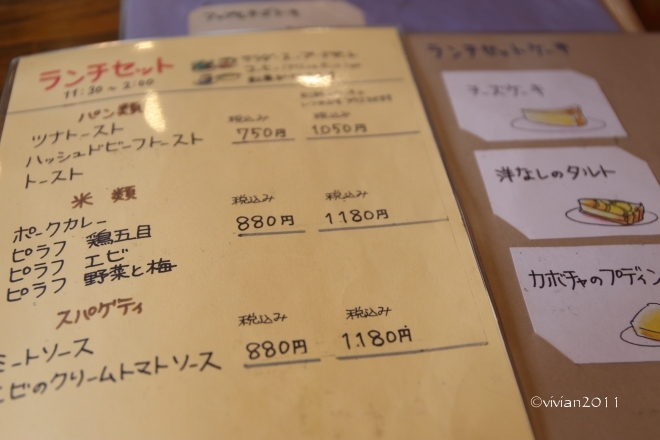 ランチセット
11:30〜2:00
パン類
税込み 税込み
ツナトースト
750円 1050円
ハッシュドビーフトースト
トースト
米類
税込み 税込み
ポークカレー
880円 1180円
ピラフ 鶏五目
ピラフ エビ
ピラフ 野菜と梅
スパゲティ
税込み 税込み
ミートソース
880円 1180円
エビのクリームトマトソース
ランチセットケーキ
チーズケーキ
洋なしのタルト
カボチャのプディン
©vivian2011